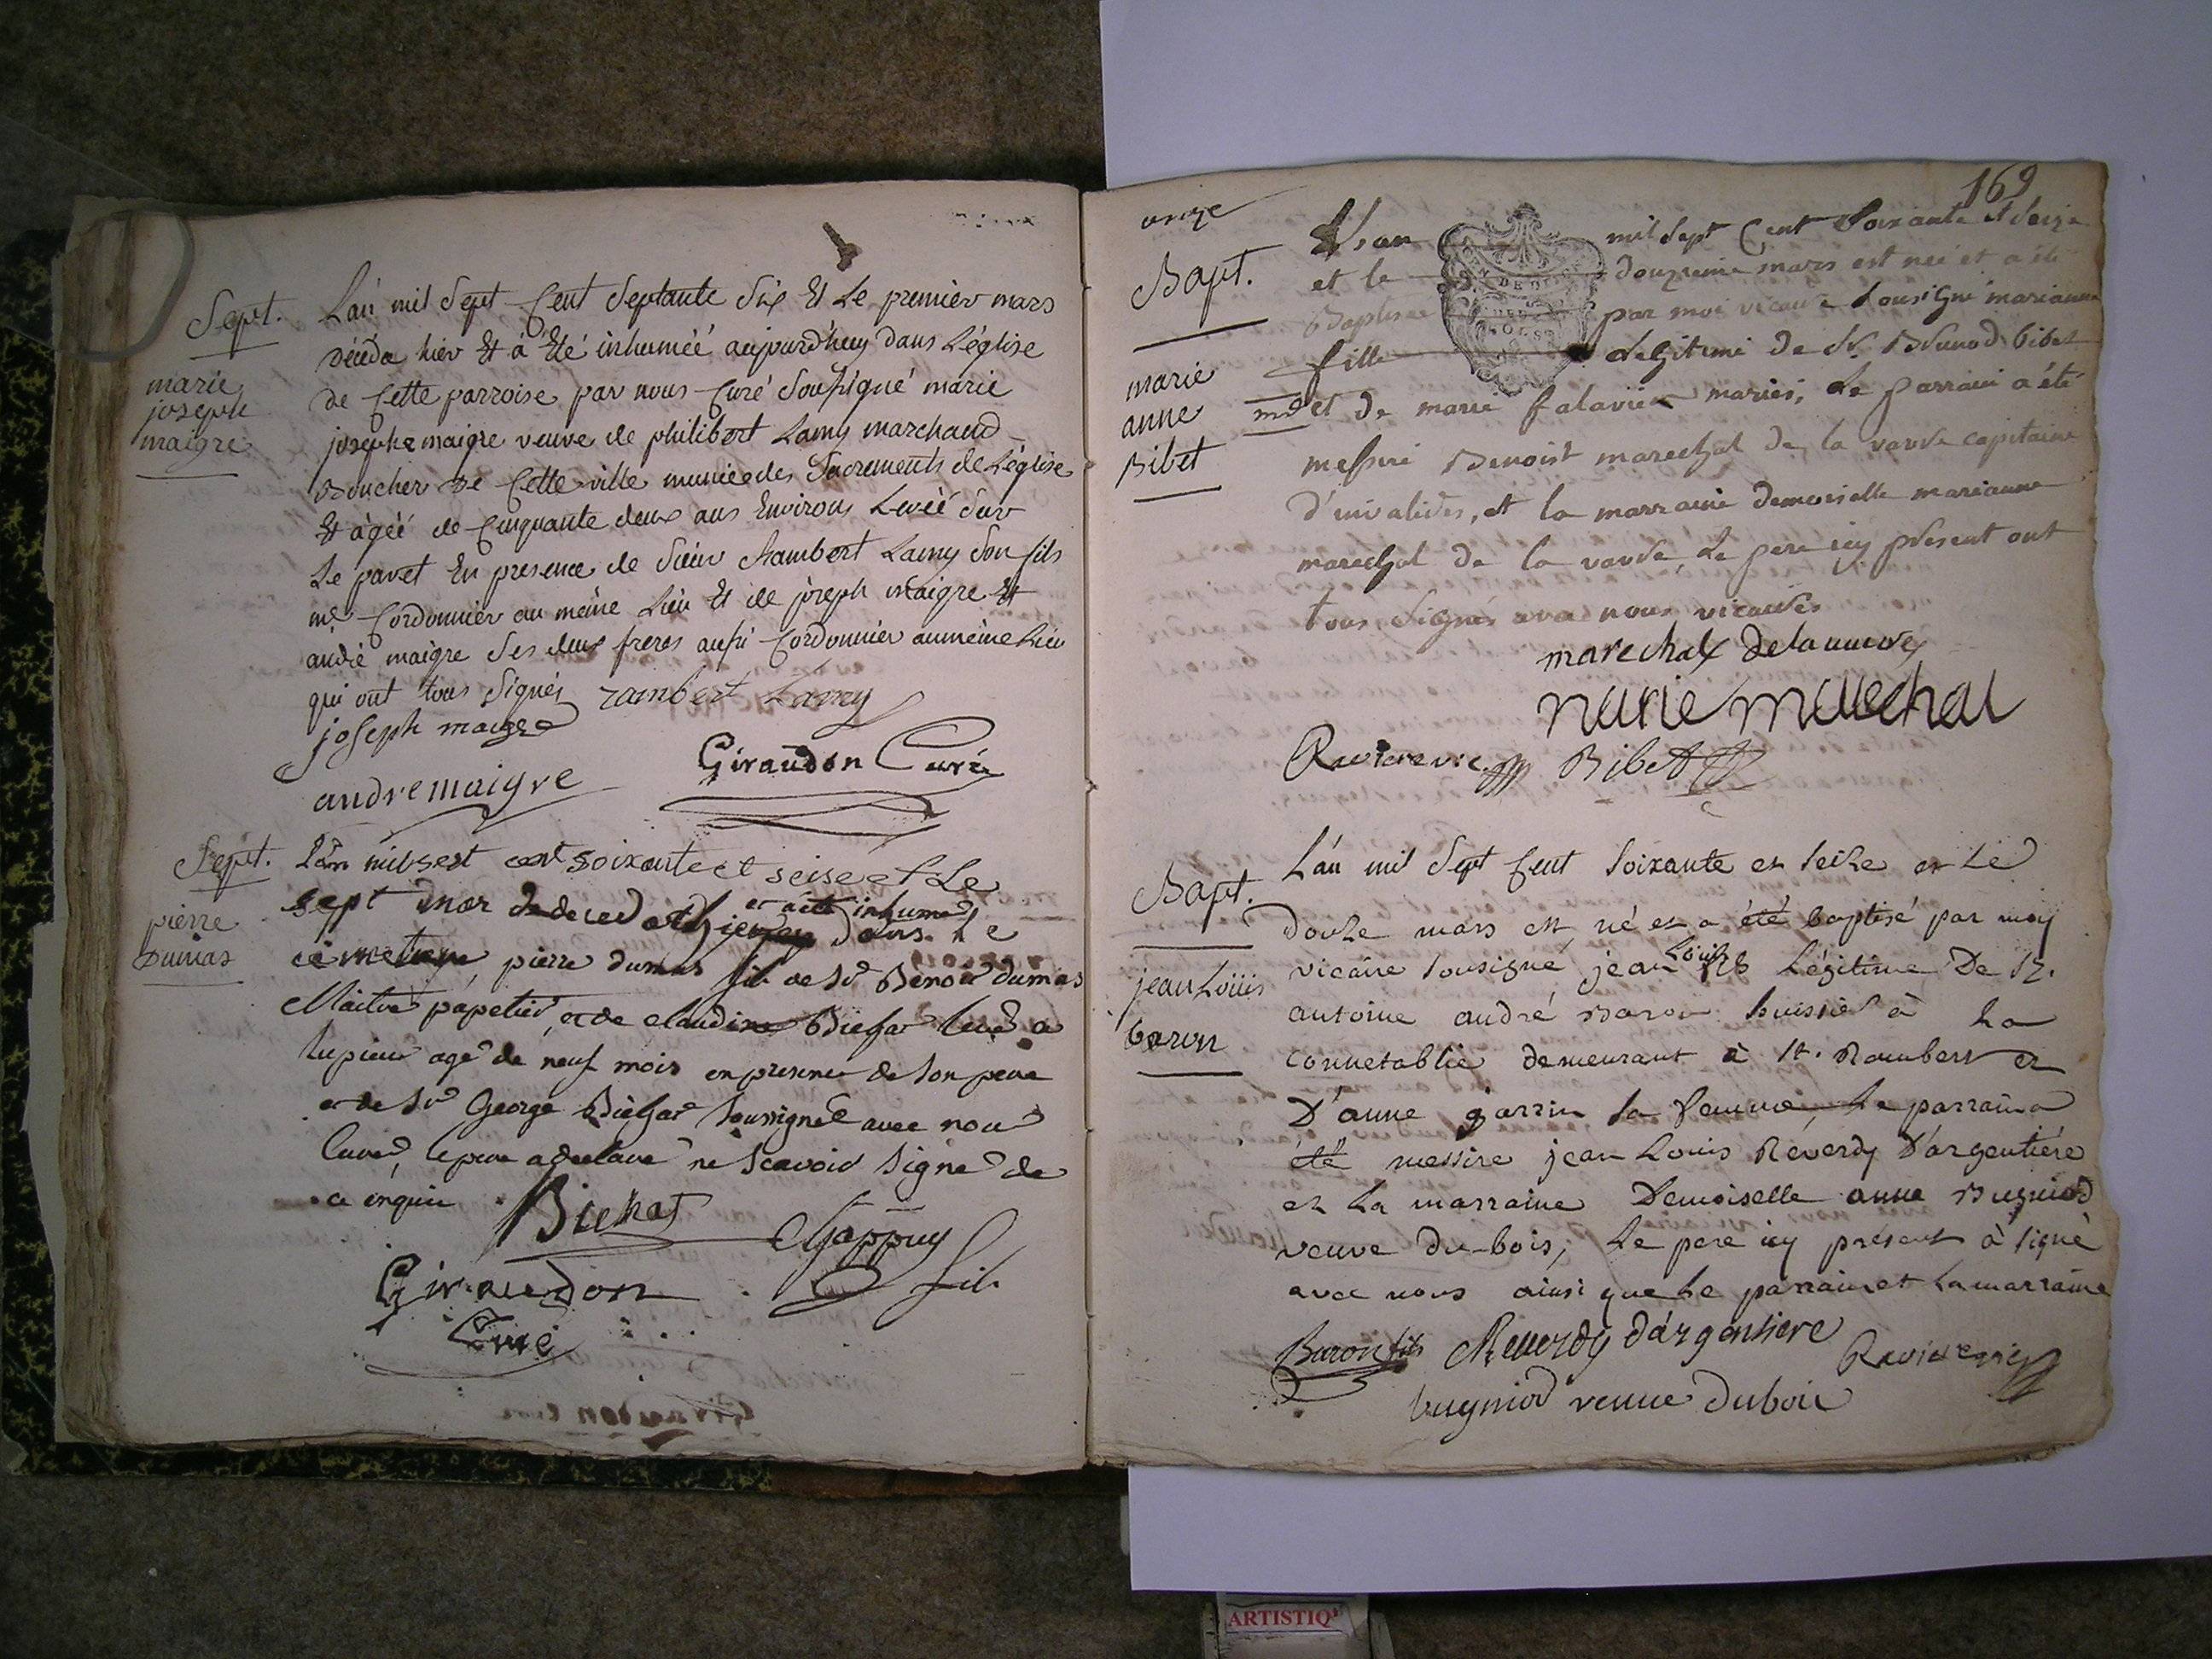 Sept.
marie
joseph
maigre
L'an mil Sept Cent Septante Six Et Le premier mars
décéda hier Et à Eté inhumée aujourd'huy dans L'église
de Cette parroise par nous Curé Soussigné marie
josephe maigre veuve de philibert Lamy marchand
Boucher de Cette ville munie des Sacrements de L'église
Et âgée de Cinquante deux ans Environs Levée Sur
Le pavet En presence de Sieur Rambert Lamy Son fils
md Cordonnier au même Lieu Et de joseph maigre Et
andré maigre Ses deux freres aussi Cordonnier au même Lieu
qui ont tous Signés rambert Lamy
joseph maigre
andre maigre Giraudon Curé
Sept.
pierre
Dumas
L'an mil sept cent soixante et seise et Le
sept mar decede et a été inhumé dans Le
cimetiere pierre dumas fils de Sr Benoit dumas
Maitre papetier, et de claudine Bichat levé a
lupieu agé de neuf mois en presence de Son pere
et de Sr George Bichat Soussigné avec nous
Curé, le pere a declaré ne Scavoir Signé de
ce enquis Bichat
Chappuy
fils
Giraudon
Curé
169
onze
Bapt.
marie
anne
Bibet
L'an mil Sept Cent Soixante et Seize
et le douzieme mars est née et a été
Baptisée par moi vicaire Sousigné marianne
fille Legitime de Sr. Brunod bibet
md et de marie falavier mariés, Le parrain a été
messire Benoist marechal de la vavre capitaine
d'invalides, et la marraine demoiselle marianne
marechal de la vavre, Le pere icy présent ont
tous Signés avec nous vicaires
marechal delavavre
marie marechal
Ravier vic. Bibet
Bapt.
jean Loüis
baron
L'an mil Sept Cent Soixante et Seize et Le
Douze mars est né et a été baptisé par moy
vicaire Sousigné jean Loüis fils Légitime De Sr.
antoine andré Baron huissier à La
connetablie demeurant à St. Rambert et
D'anne garrin Sa femme, Le parrain a
été messire jean Louis Réverdy D'argentiére
et La marraine Demoiselle anne Bugniod
veuve Du-bois; Le pere icy présent à signé
avec nous ainsi que Le parrain et La marraine
Baron fils Reverdy d'argentiere Ravier vic
bugniod veuve Dubois
ARTISTIQ